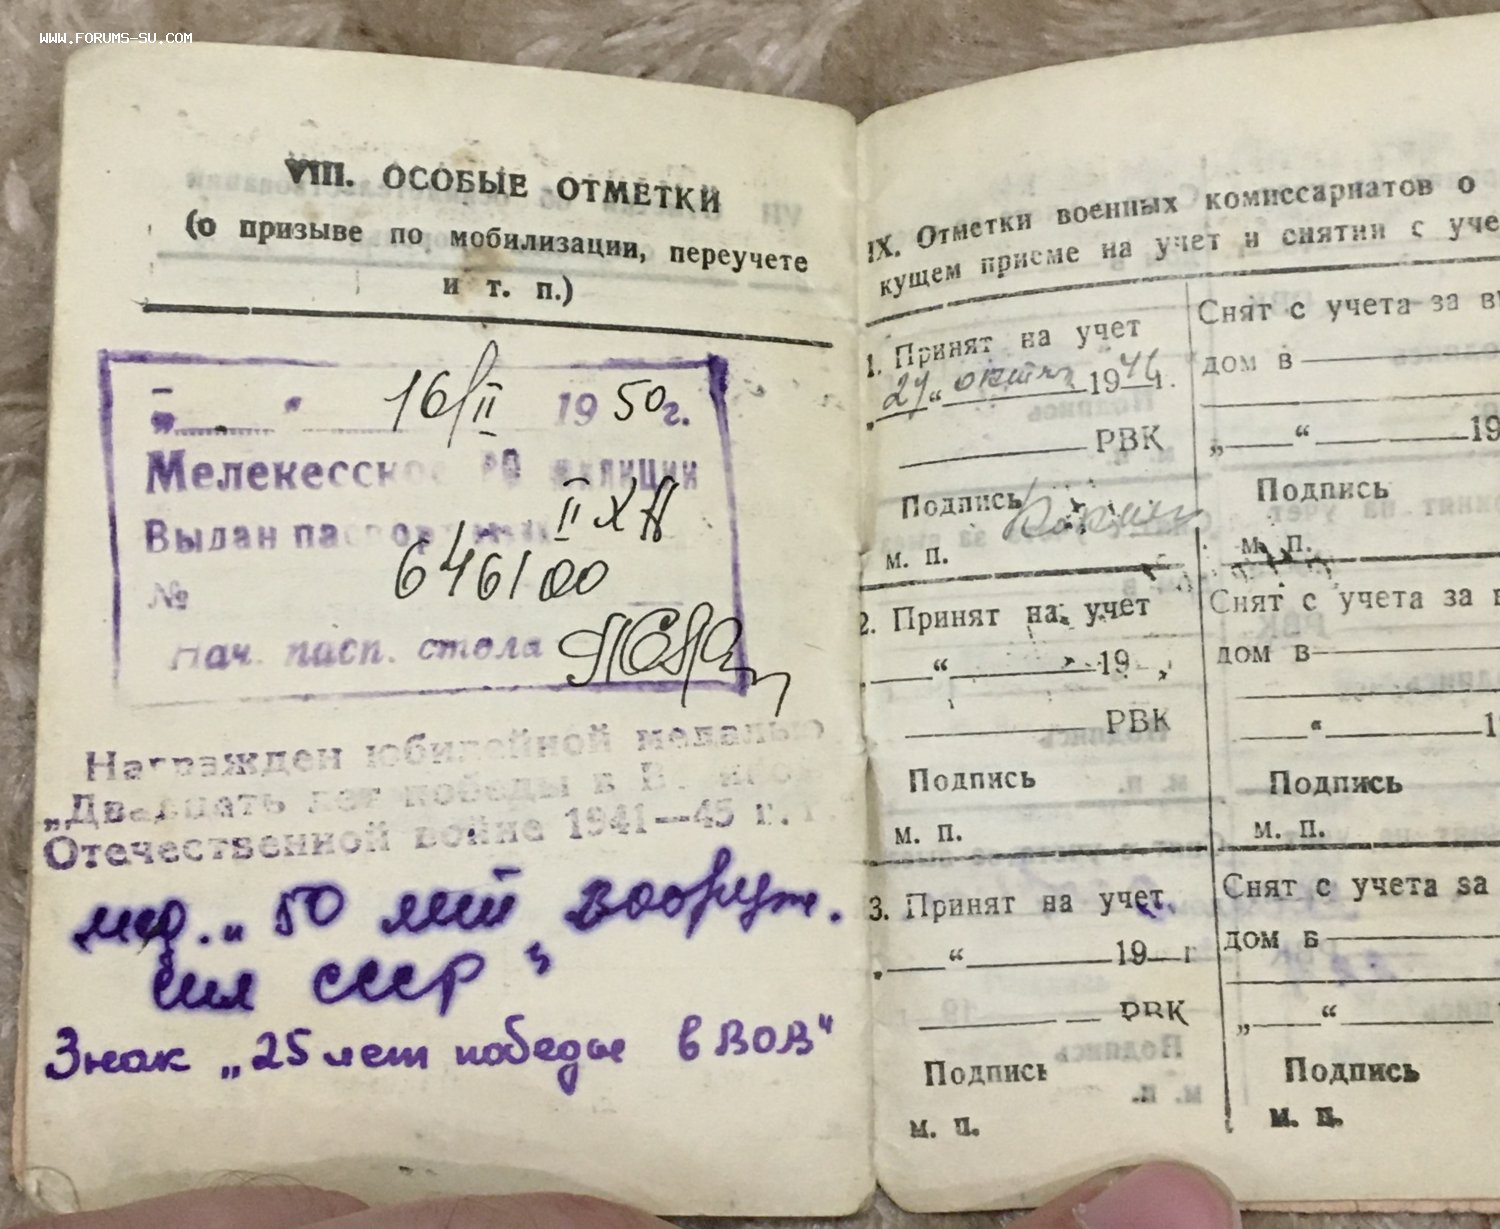 WWW.FORUMS-SU.COM
VIII. ОСОБЫЕ ОТМЕТКИ
(о призыве по мобилизации, переучете
и т. п.)
„ “ 16/II 1950г.
Мелекесское РО милиции
Выдан паспорт II ХА
№ 646100
Нач. пасп. стола
Награжден юбилейной медалью
„Двадцать лет победы в Великой
Отечественной войне 1941—45 г.г.
мед. „50 лет вооруж.
сил СССР"
Знак „25 лет победы в ВОВ"
IX. Отметки военных комиссариатов о
кущем приеме на учет и снятии с уче
1. Принят на учет
„ “ 1946г.
РВК
Подпись
м. п.
Снят с учета за вы
дом в
„ “ 19
Подпись
м. п.
2. Принят на учет
“ 19
РВК
Подпись
м. п.
Снят с учета за в
дом в
“ 1
Подпись
м. п.
3. Принят на учет
„ “ 19 г
РВК
Подпись
м. п.
Снят с учета за
дом в
„ “
Подпись
м. п.